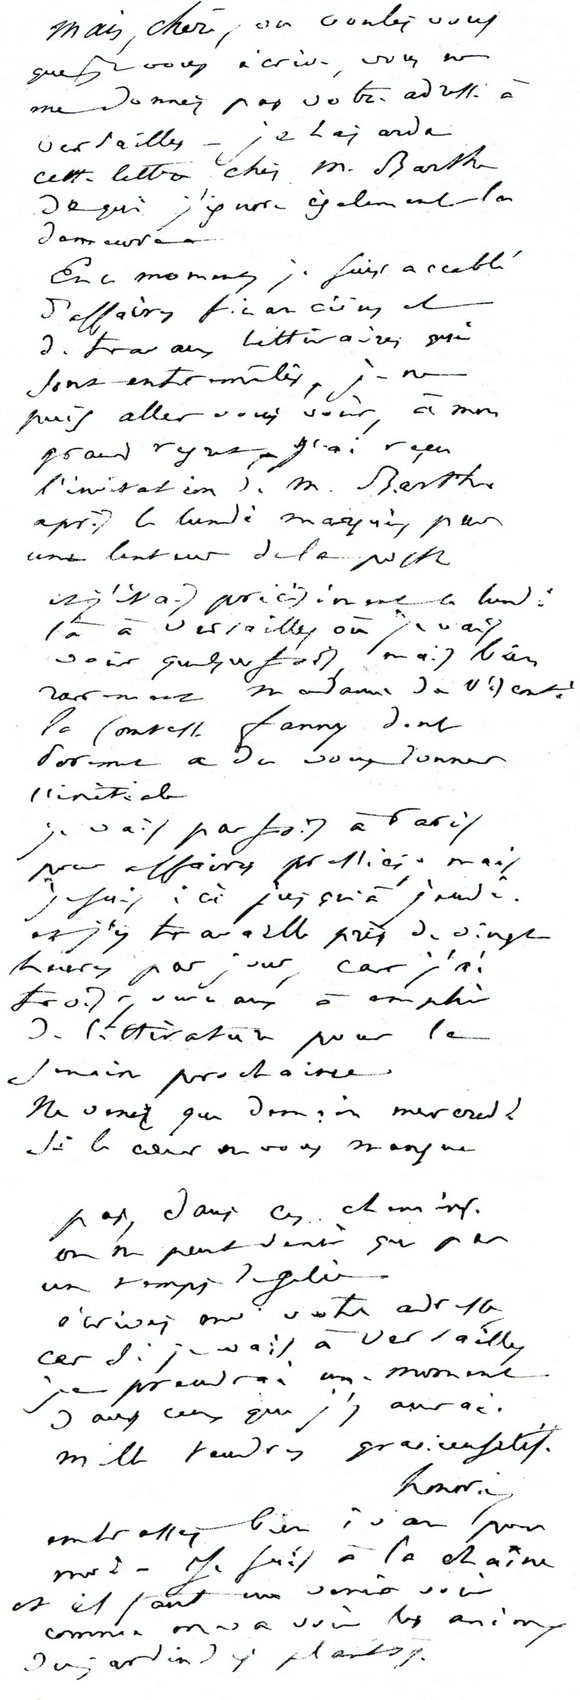 mais, chère, où voulez vous
que je vous écrive, vous ne
me donnez pas votre adresse à
versailles – je hasarde
cette lettre chez M. Barthe
de qui j'ignore également la
demeure
En ce moment je suis accablé
d'affaires financières et
de travaux littéraires qui
sont entremêlés, je ne
puis aller vous voir, à mon
grand regret, j'ai reçu
l'invitation de M. Barthe
après le lundi marqué par
une lenteur de la poste
et j'étais précisément ce lundi
là à Versailles où je vais
voir quelquefois, mais bien
rarement madame de Visconti
la Contesse fanny dont
a du vous donner
l'initiale
je vais parfois à Paris
pour affaires pressées mais
je suis ici jusqu'à jeudi.
et j'y travaille près de vingt
heures par jour, car j'ai
trois journaux à emplir
de littérature pour la
semain prochaine.
Ne venez que demain mercredi
si le cœur ne vous manque
pas, dans ces chemins.
on ne peut venir que par
un temps de gelée
écrivez moi votre adresse,
car si je vais à Versailles
je prendrai un moment
dans ceux que j'y aurai.
mille tendres gracieusetés.
honoré
embrassez bien ivan pour
moi – Je suis à la chaîne
et il faut me venir voir
comme on va voir les animaux
du jardin des plantes.